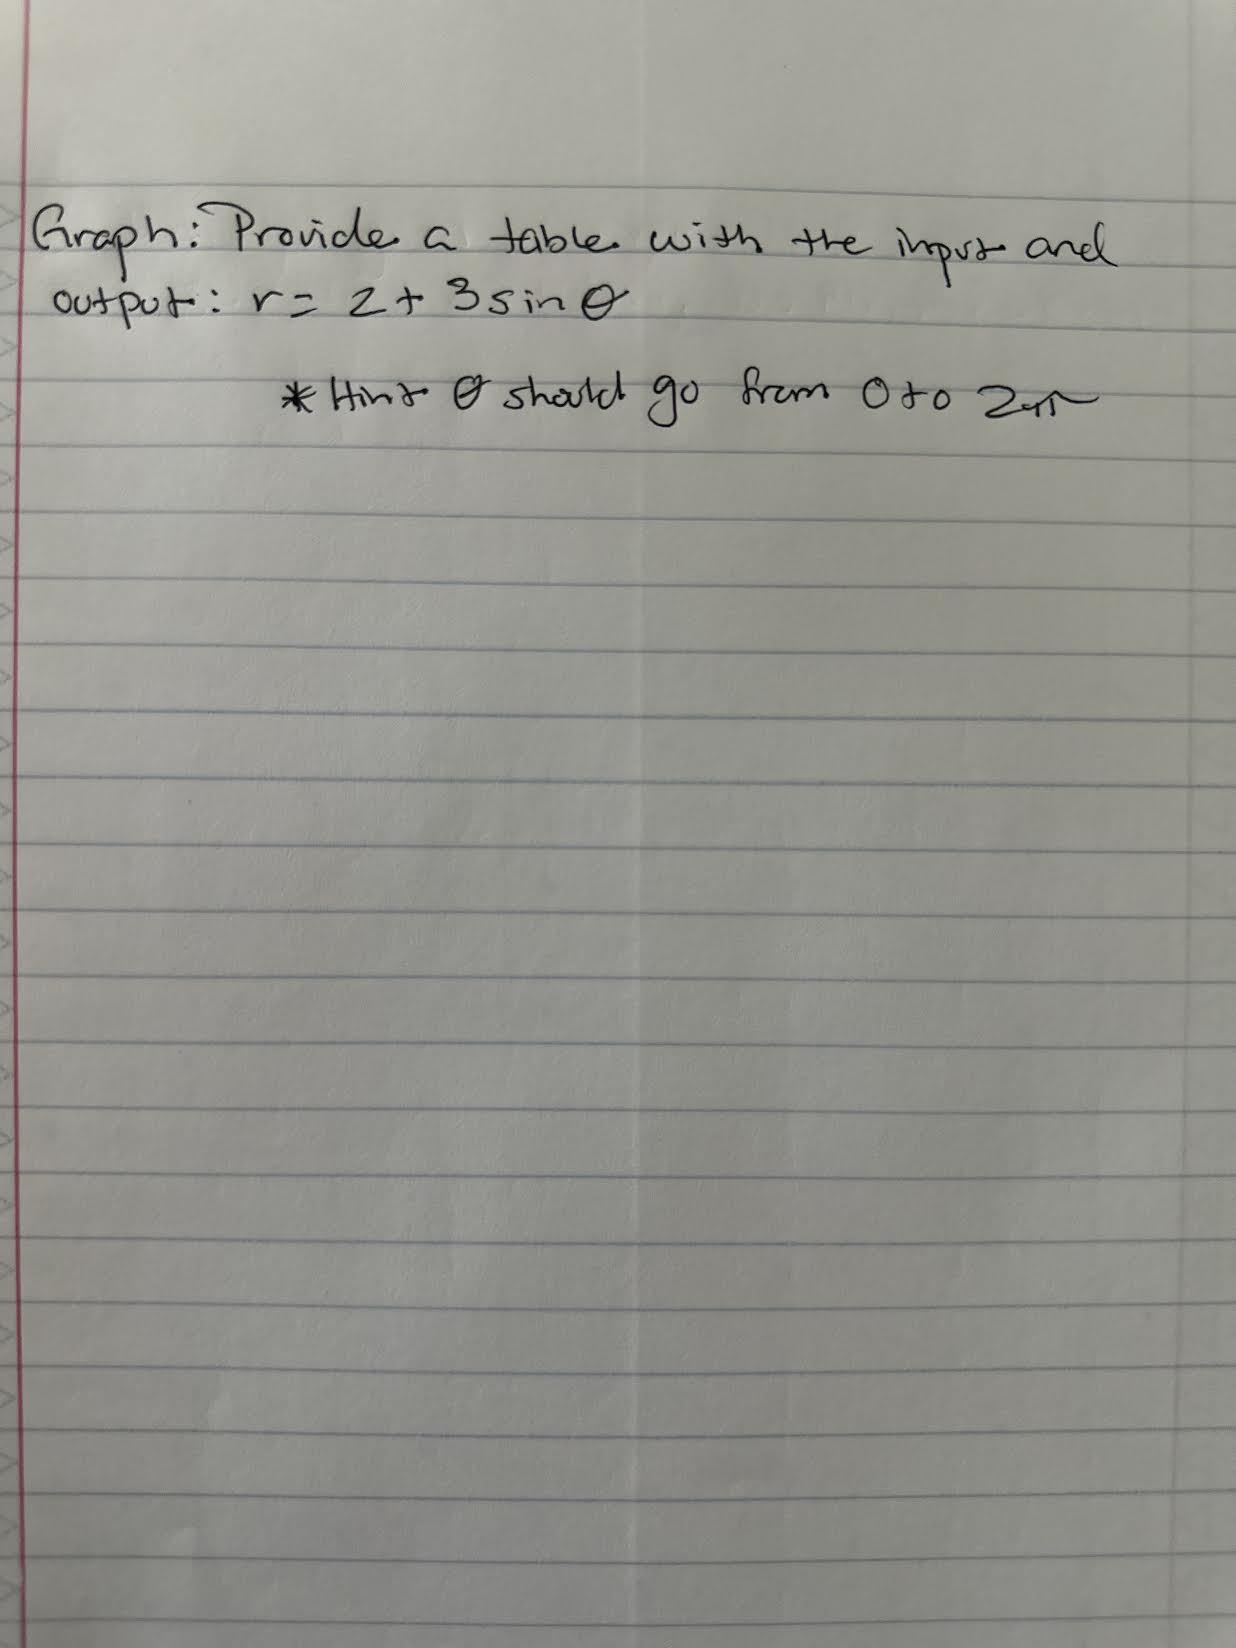 Graph: Provide a table with the input and
output: r = 2 + 3 sin θ
* Hint θ should go from 0 to 2π